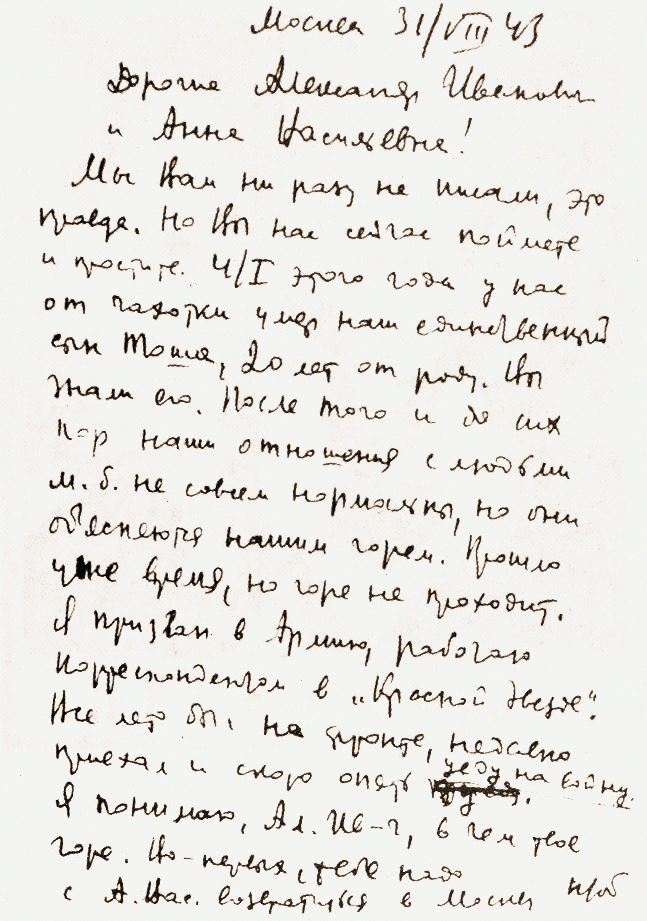 Москва 31/VIII 43
Дорогие Александр Иванович
и Анна Васильевна!
Мы Вам ни разу не писали, это
правда. Но Вы нас сейчас поймете
и простите. 4/I этого года у нас
от чахотки умер наш единственный
сын Тоша, 20 лет от роду. Вы
знали его. После того и до сих
пор наши отношения с людьми
м. б. не совсем нормальны, но они
об'ясняются нашим горем. Прошло
уже время, но горе не проходит.
Я призван в Армию, работаю
корреспондентом в „Красной Звезде“.
Все лето был на фронте, недавно
приехал и скоро опять уеду на войну.
Я понимаю, Ал. Ив-ч, в чем твое
горе. Во-первых, тебе надо
с А. Вас. возвратиться в Москву